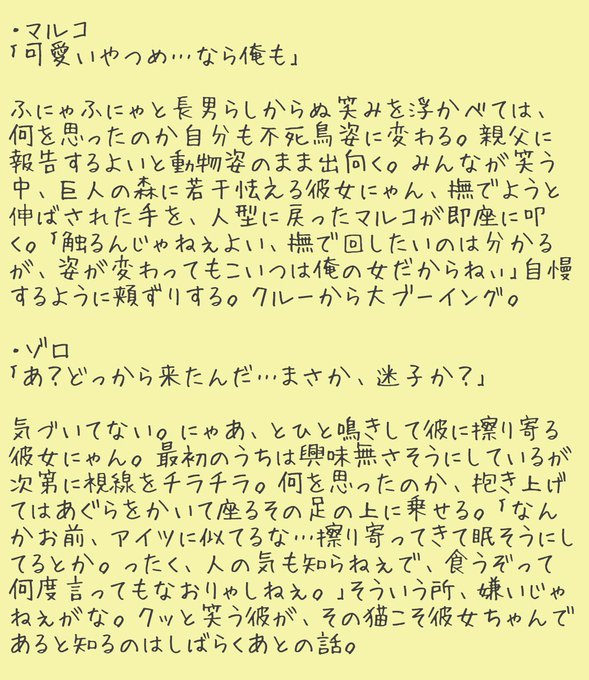 ・マルコ
「可愛いやつめ…なら俺も」
ふにゃふにゃと長男らしからぬ笑みを浮かべては、
何を思ったのか自分も不死鳥姿に変わる。親父に
報告するよいと動物姿のまま出向く。みんなが笑う
中、巨人の森に若干怯える彼女にゃん、撫でようと
伸ばされた手を、人型に戻ったマルコが即座に叩
く。「触るんじゃねぇよい、撫で回したいのは分かる
が、姿が変わってもこいつは俺の女だからねぃ」自慢
するように頬ずりする。クルーから大ブーイング。
・ゾロ
「あ？どっから来たんだ…まさか、迷子か？」
気づいてない。にゃあ、とひと鳴きして彼に擦り寄る
彼女にゃん。最初のうちは興味無さそうにしているが
次第に視線をチラチラ。何を思ったのか、抱き上げ
てはあぐらをかいて座るその足の上に乗せる。「なん
かお前、アイツに似てるな…擦り寄ってきて眠そうにし
てるとか。ったく、人の気も知らねぇで、食うぞって
何度言ってもなおりゃしねぇ。」そういう所、嫌いじゃ
ねぇがな。クッと笑う彼が、その猫こそ彼女ちゃんで
あると知るのはしばらくあとの話。